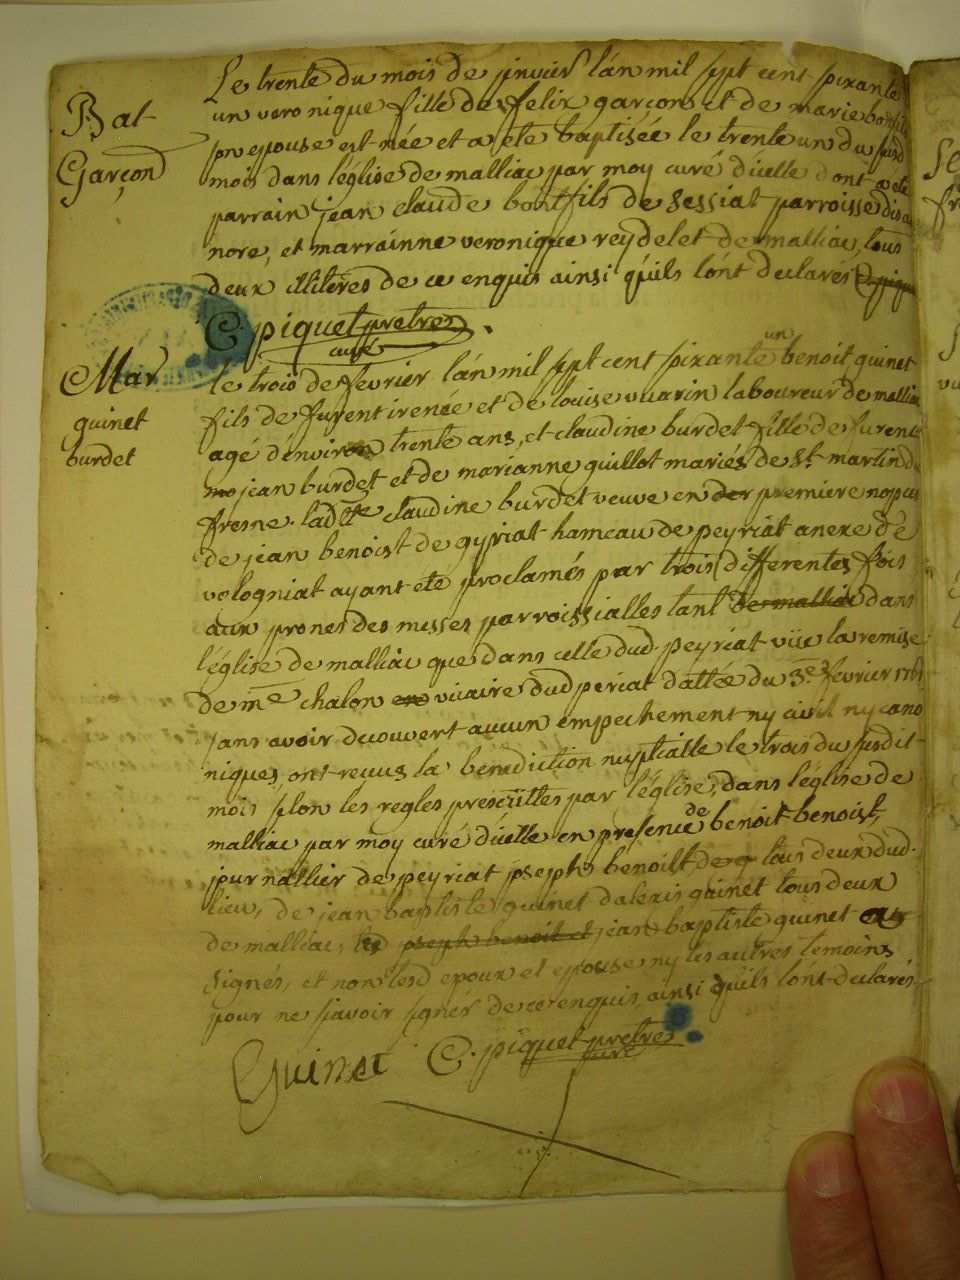 Bat
Garçon
Le trente du mois de janvier l'an mil sept cent soixante
un veronique fille de felix garçon et de marie bontfils
son epouse est née et a été baptisée le trente un du susd
mois dans l'église de malliac par moy curé d'icelle dont a ete
parrain jean claude bontfils de sessiat parroisse d'isa
nore, et marrainne veronique reydelet de malliac, tous
deux illiteres de ce enquis ainsi qu'ils l'ont declarés
C. piquet pretres
curé
Mar
guinet
burdet
le trois de fevrier l'an mil sept cent soixante un benoit guinet
fils de furent irenée et de louise vuarin laboureur de malliac
agé d'environ trente ans, et claudine burdet fille de furent
jean burdet et de marianne guillot mariés de St martin du
fresne. ladte claudine burdet veuve en premiere nopces
de jean benoist de gyriat hameau de peyriat anexe de
vologniat ayant été proclamés par trois differentes fois
aux prones des messes parroissialles tant de malliac dans
l'église de malliac que dans celle dud. peyriat vüe la remise
de me chalon vicaire dud periat dattée du 3e fevrier 1761
sans avoir decouvert aucun empechement ny civil ny cano
niques, ont reçus la benediction nuptialle le trois du susdit
mois selon les regles prescrittes par l'église, dans l'église de
malliac par moy curé d'icelle en presence de benoit benoist,
journallier de peyriat joseph benoist tous deux dud.
lieu, de jean baptiste guinet d'alexis guinet tous deux
de malliac, led joseph benoit et jean baptiste guinet
signés, et non lesd epoux et epouse ny les autres temoins
pour ne sçavoir signer de ce enquis, ainsi qu'ils l'ont declarés
Guinet C. piquet pretre
curé